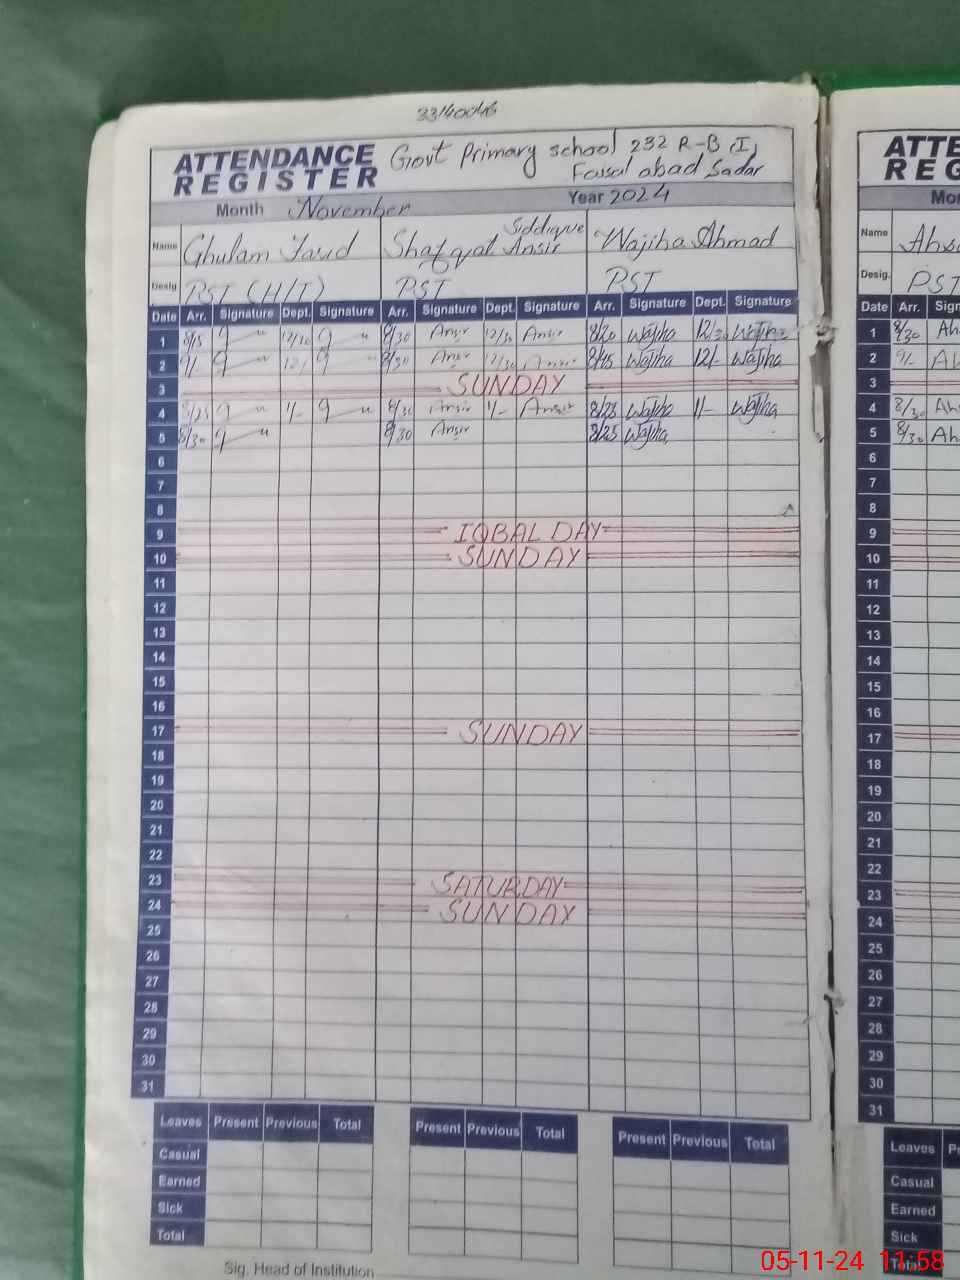 33140046
ATTENDANCE REGISTER Govt Primary school 232 R-B (I)
Faisal abad Sadar
Month November Year 2024
Name Ghulam Farid Shafqat Siddique Ansir Wajiha Ahmad
Desig. PST (H/T) PST PST
Date Arr. Signature Dept. Signature Arr. Signature Dept. Signature Arr. Signature Dept. Signature
1 8/15 12/30 8/30 Ansir 12/30 Ansir 8/20 Wajiha 12/30 Wajiha
2 9/- 12/ 8/30 Ansir 12/30 Ansir 8/45 Wajiha 12/- Wajiha
3 SUNDAY
4 8/25 1/- 8/30 Ansir 1/- Ansir 8/25 Wajiha 1/- Wajiha
5 8/30 8/30 Ansir 8/25 Wajiha
6
7
8
9 IQBAL DAY
10 SUNDAY
11
12
13
14
15
16
17 SUNDAY
18
19
20
21
22
23 SATURDAY
24 SUNDAY
25
26
27
28
29
30
31
Leaves Present Previous Total Present Previous Total Present Previous Total
Casual
Earned
Sick
Total
Sig. Head of Institution
ATTE
REG
Mon
Name Ahs
Desig. PST
Date Arr. Sign
1 8/30 Ah
2 9/- Ah
3
4 8/30 Ah
5 8/30 Ah
6
7
8
9
10
11
12
13
14
15
16
17
18
19
20
21
22
23
24
25
26
27
28
29
30
31
Leaves Pr
Casual
Earned
Sick
Total
05-11-24 11:58